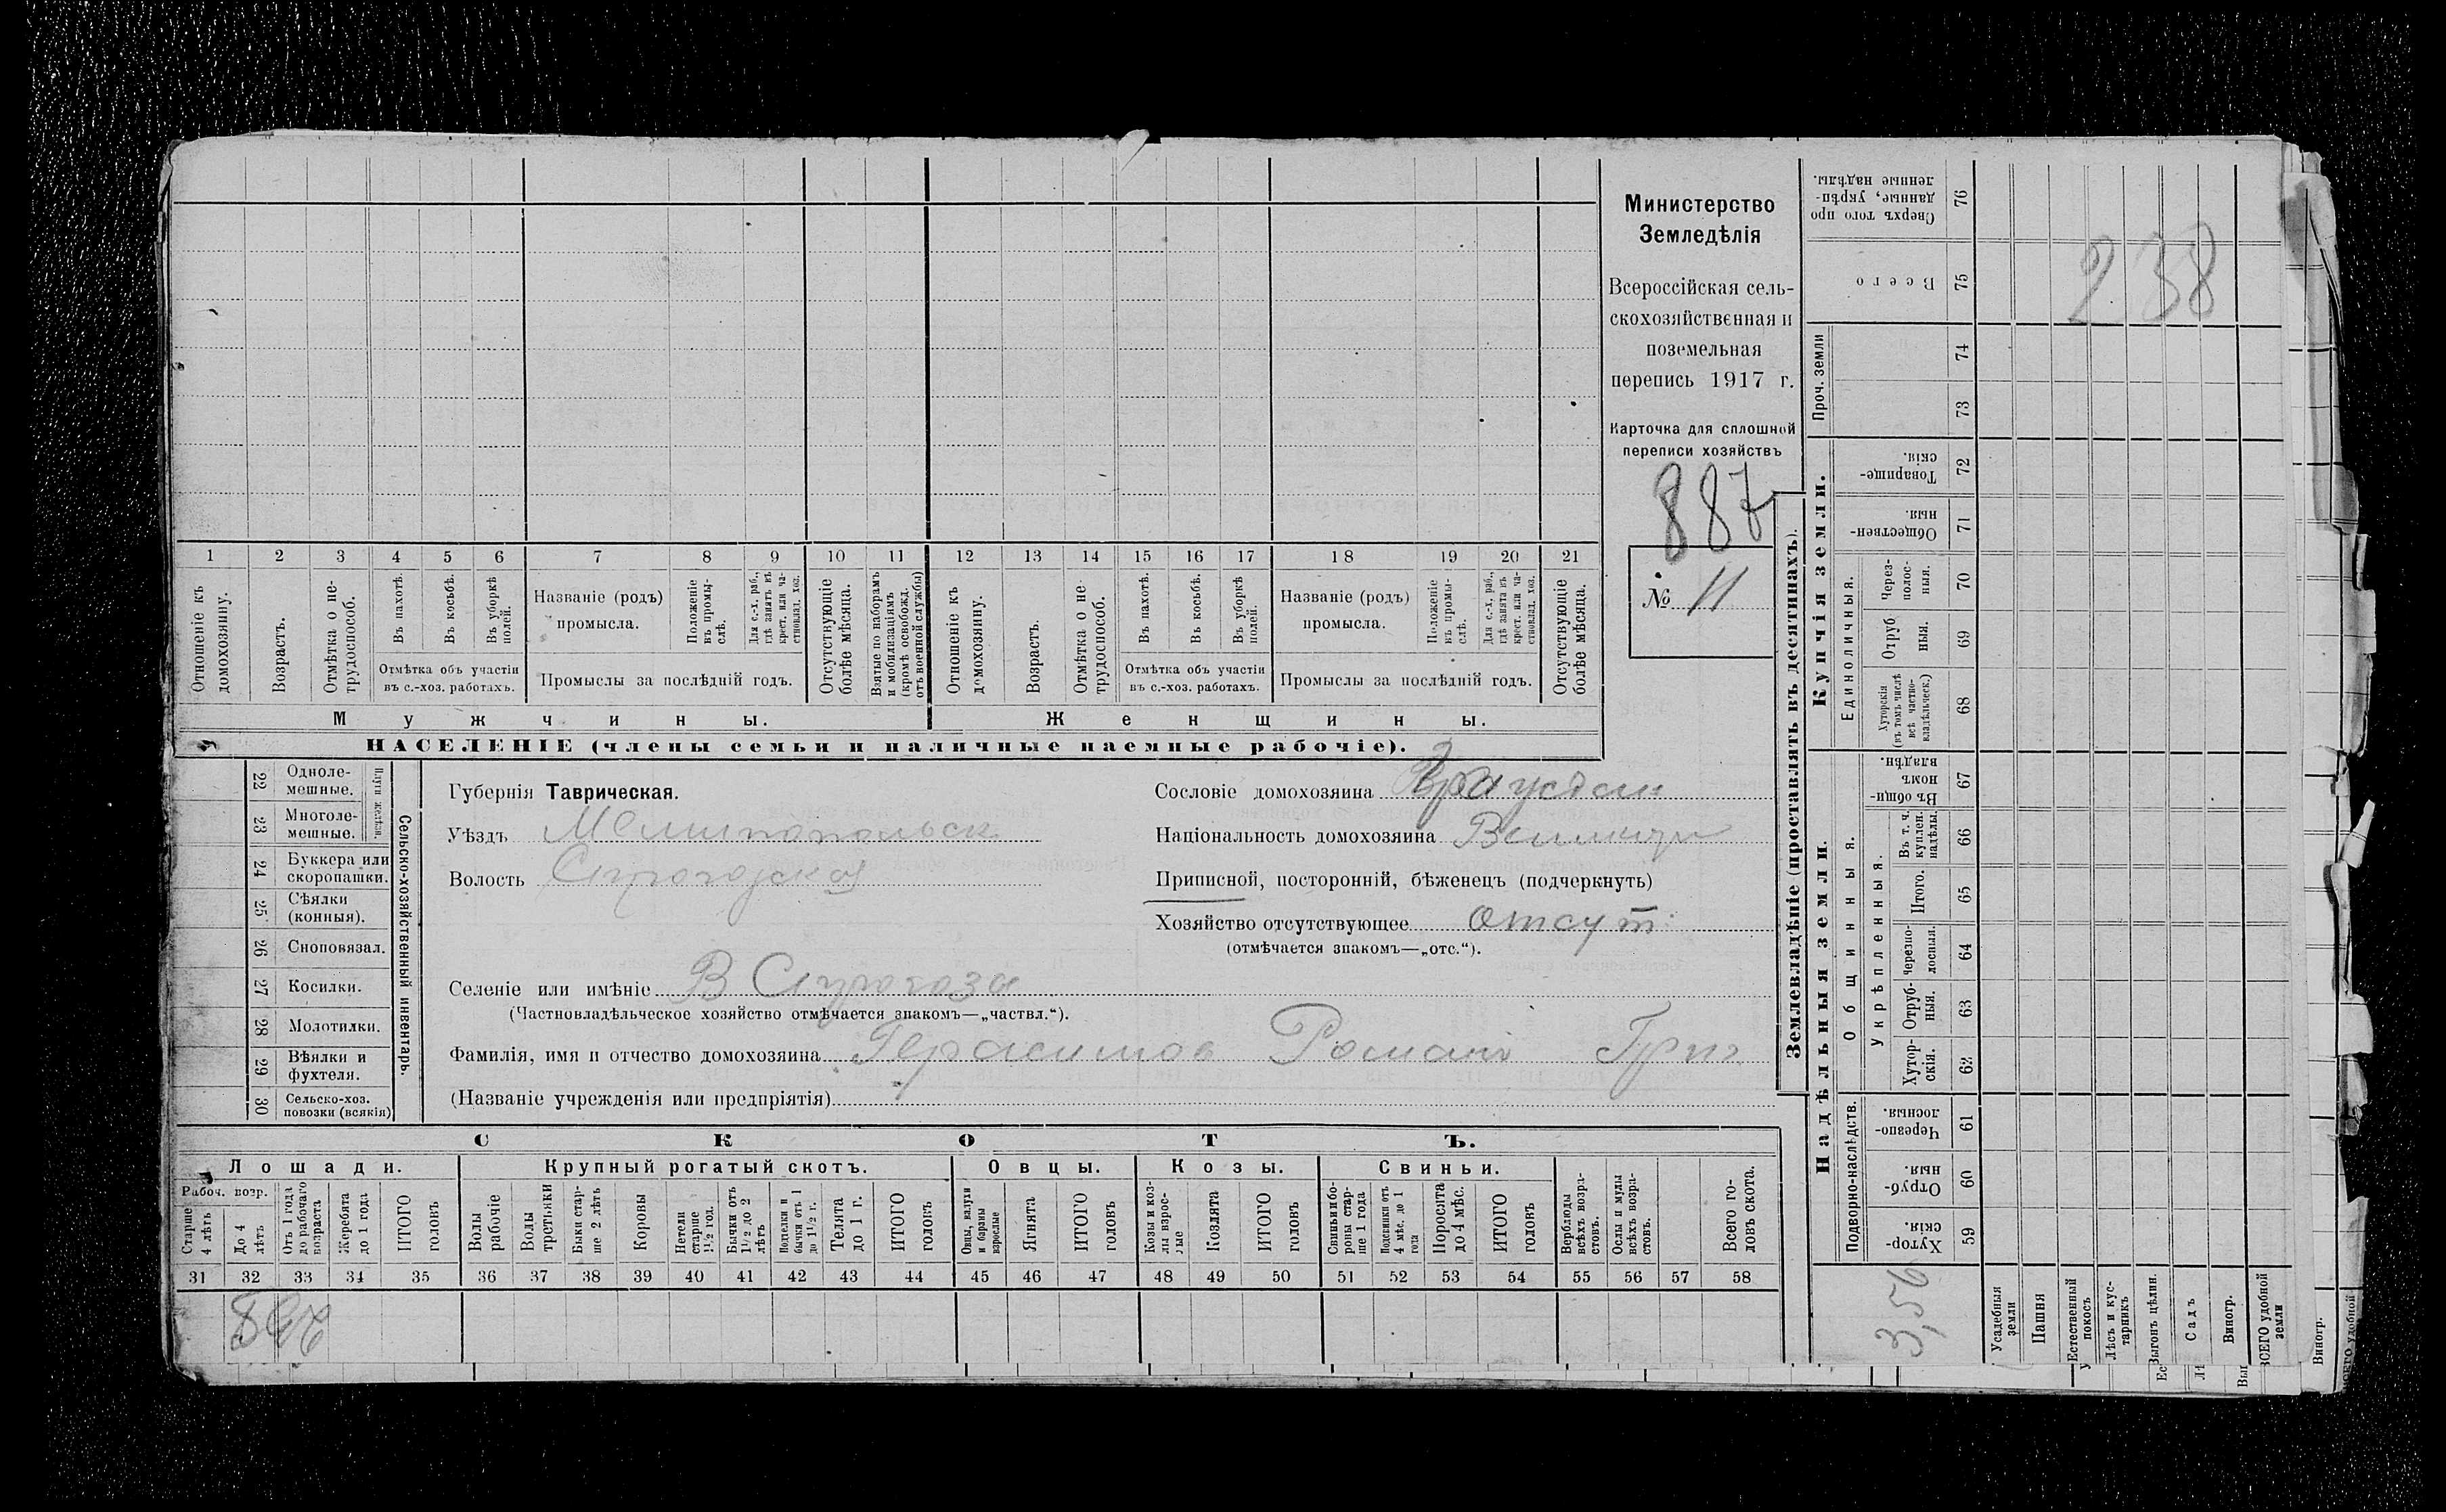 Министерство
Земледѣлія
Всероссійская сель-
скохозяйственная и
поземельная
перепись 1917 г.
Карточка для сплошной
переписи хозяйствъ
887
№ 11
1 2 3 4 5 6 7 8 9 10 11 12 13 14 15 16 17 18 19 20 21
Отношеніе къ домохозяину.
Возрастъ.
Отмѣтка о не-трудоспособ.
Въ пахотѣ.
Въ косьбѣ.
Въ уборкѣ полей.
Отмѣтка объ участіи
въ с.-хоз. работахъ.
Названіе (родъ)
промысла.
Положеніе къ промы-слѣ.
Для с.-х. раб., гдѣ занятъ въ крест. или ча-стновлад. хоз.
Промыслы за послѣдній годъ.
Отсутствующіе болѣе мѣсяца.
Взятые по наборамъ и мобилизаціямъ (кромѣ освобожд. отъ военной службы)
Отношеніе къ домохозяину.
Возрастъ.
Отмѣтка о не-трудоспособ.
Въ пахотѣ.
Въ косьбѣ.
Въ уборкѣ полей.
Отмѣтка объ участіи
въ с.-хоз. работахъ.
Названіе (родъ)
промысла.
Положеніе къ промы-слѣ.
Для с.-х. раб., гдѣ занята въ крест. или ча-ствовлад. хоз.
Промыслы за послѣдній годъ.
Отсутствующіе болѣе мѣсяца.
Мужчины. Женщины.
НАСЕЛЕНІЕ (члены семьи и наличные наемные рабочіе).
Сельско-хозяйственный инвентарь.
Плуги желѣзн.
22 Одноле-
мешные.
23 Многоле-
мешные.
24 Буккера или
скоропашки.
25 Сѣялки
(конныя).
26 Сноповязал.
27 Косилки.
28 Молотилки.
29 Вѣялки и
фухтеля.
30 Сельско-хоз.
повозки (всякія)
Губернія Таврическая.
Уѣздъ Мелитопольск
Волость
Сословіе домохозяина
Національность домохозяина
Приписной, посторонній, бѣженецъ (подчеркнуть)
Хозяйство отсутствующее Отсут
(отмѣчается знакомъ—„отс.“).
Селеніе или имѣніе В
(Частновладѣльческое хозяйство отмѣчается знакомъ—„частвл.“).
Фамилія, имя и отчество домохозяина Герасимов Роман Григ
(Названіе учрежденія или предпріятія)
СКОТЪ.
Лошади. Крупный рогатый скотъ. Овцы. Козы. Свиньи.
Рабоч. возр.
Старше 4 лѣтъ
До 4 лѣтъ
Отъ 1 года до рабочаго возраста
Жеребята до 1 года
ИТОГО головъ
Волы рабочіе
Волы третьяки
Быки стар-ше 2 лѣтъ
Коровы
Нетели старше 1½ год.
Бычки отъ 1½ до 2 лѣтъ
Подтелки и бычки отъ 1 до 1½ г.
Телята до 1 г.
ИТОГО головъ
Овцы, валухи и бараны взрослые
Ягнята
ИТОГО головъ
Козы и коз-лы взрос-лые
Козлята
ИТОГО головъ
Свиньи и бо-ровы стар-ше 1 года
Подсвинки отъ 4 мѣс. до 1 года
Поросята до 4 мѣс.
ИТОГО головъ
Верблюды всѣхъ возра-стовъ.
Ослы и мулы всѣхъ возра-стовъ.
Всего го-ловъ скота.
31 32 33 34 35 36 37 38 39 40 41 42 43 44 45 46 47 48 49 50 51 52 53 54 55 56 57 58
Землевладѣніе (проставлять въ десятинахъ).
Надѣльныя земли. Купчія земли. Проч. земли
Подворно-наслѣдств.
Общинныя.
Укрѣпленныя.
Единоличныя.
Сверхъ того про
данные, укрѣп-
ленные надѣлы.
76
Всего
75
74
73
Товарище-
скія.
72
Обществен-
ныя.
71
Через-
полос-
ныя.
70
Отруб
ныя.
69
Хуторскія
(въ томъ числѣ
всѣ частно-
владѣльческ.)
68
Въ общи-
номъ
владѣн.
67
Въ т. ч.
куплен.
надѣлы.
66
Итого.
65
Черезпо-
лосныя.
64
Отруб-
ныя.
63
Хутор-
скія.
62
Черезпо-
лосныя.
61
Отруб-
ныя.
60
Хутор-
скія.
59
238
3,56
Усадебныя
земли
Пашня
Естественный
покосъ
Лѣсъ и кус-
тарникъ
Выгонъ цѣлин.
Садъ
Виногр.
ВСЕГО удобной
земли
Виногр.